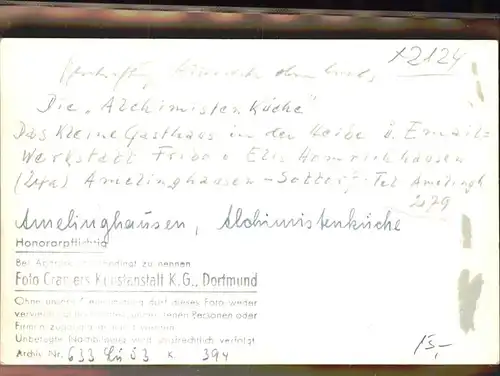 x2124
Die „Alchimisten Küche"
Das kleine Gasthaus in der Heide u. Email-
Werkstatt Fribo u Elis Homrichhausen
(24a) Amelinghausen - Sottorf - Tel Amelingh
279
Amelinghausen, Alchimistenküche
Honorarpflichtig
Bei Abdruck unbedingt zu nennen
Foto Cramers Kunstanstalt K.G., Dortmund
Ohne unsere Genehmigung darf dieses Foto weder
vervielfältigt noch dritten Personen oder
Firmen zugänglich gemacht werden
Unbefugte Nachbildung wird strafrechtlich verfolgt
Archiv Nr. 633 Lü 53 K. 394
15,-